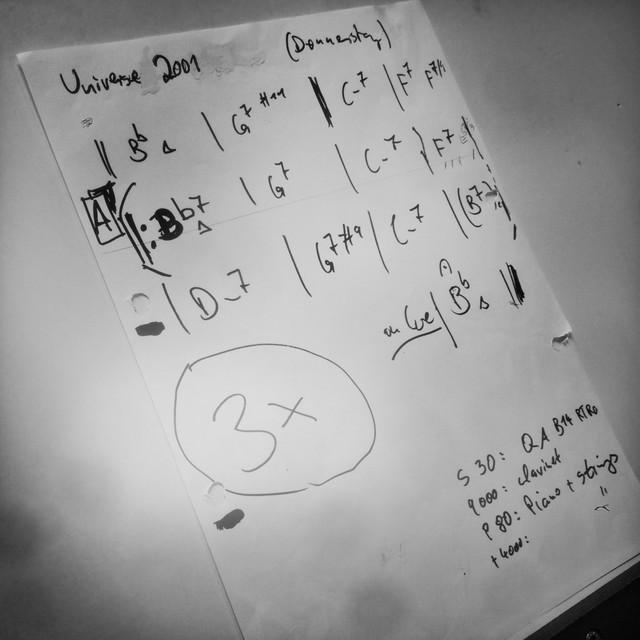 Universe 2001 (Donnerstag)
|| Bb Δ | G7 #11 | C-7 | F7
A ||: Bb7 Δ | G7 | C-7 | F7
| D-7 | G7 #9 | C-7 | (B7
on Cue | Bb Δ ||
3x
S 30:
9000: clarinet
P 80: Piano + strings
+4000: "